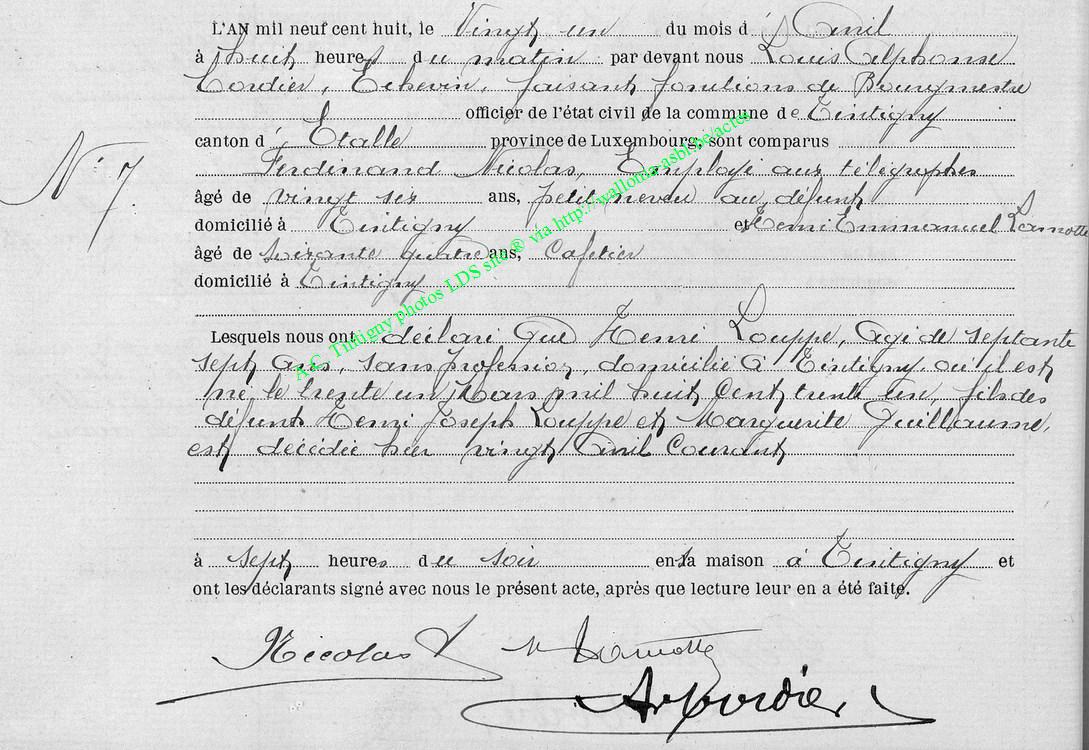 L'AN mil neuf cent huit, le Vingt un du mois d'Avril
à huit heures du matin par devant nous Louis Alphonse
Cordier, Echevin, faisant fonctions de Bourgmestre
officier de l'état civil de la commune de Tintigny
canton d'Etalle province de Luxembourg, sont comparus
N° 7.
Ferdinand Nicolas, Employé aux télégraphes
âgé de vingt six ans, petit neveu au défunt
domicilié à Tintigny et Henri Emmanuel Lamotte
âgé de soixante quatre ans, Cafetier
domicilié à Tintigny
Lesquels nous ont déclaré que Henri Louppe, âgé de septante
sept ans, sans profession, domicilié à Tintigny, où il est
né le trente un Mars mil huit cent trente un, fils des
défunts Henri Joseph Louppe et Marguerite Guillaume,
est décédée hier vingt Avril courant
à sept heures du soir en sa maison à Tintigny et
ont les déclarants signé avec nous le présent acte, après que lecture leur en a été faite.
Nicolas f H Lamotte
A Cordier
A.C. Tintigny photos LDS site ® via http://wallonia-asbl.be/actes